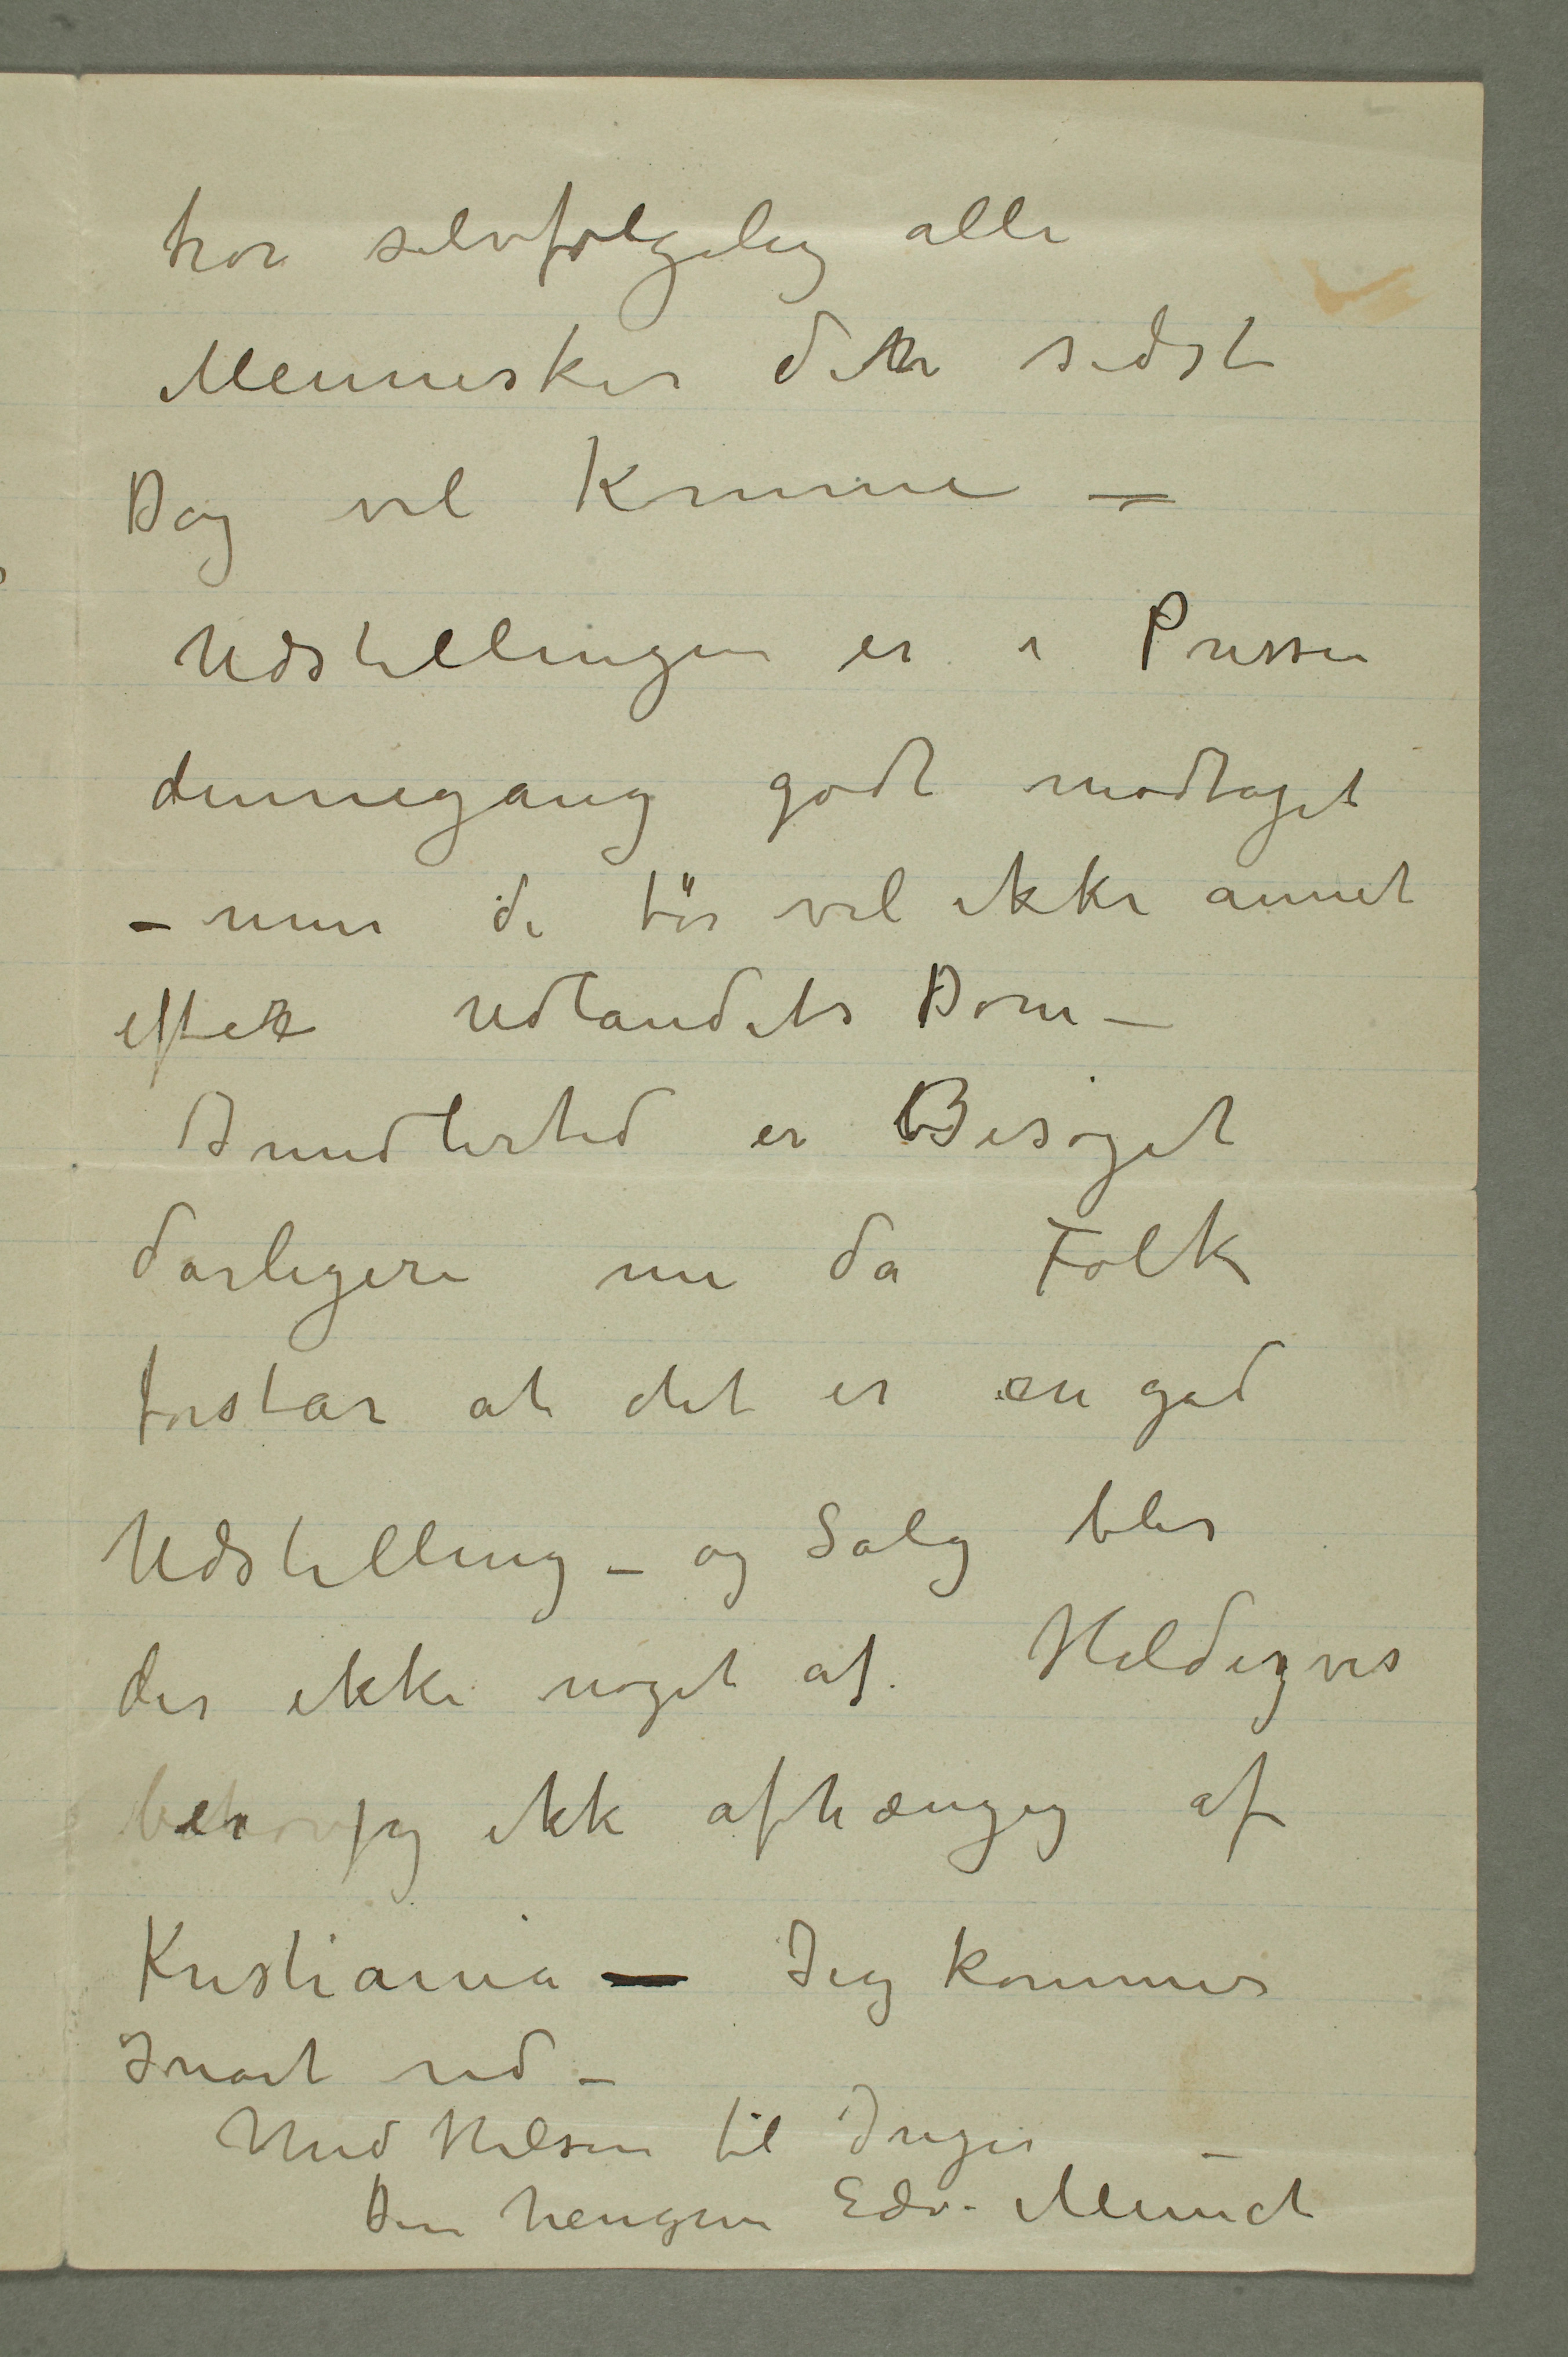 tror selvfølgelig alle
Mennesker den sidste
Dag vil komme –
Udstillingen er i Pressen
dennegang godt modtaget
– men de tör vel ikke annet
efter Udlandets Dom –
Imidlertid er Besøget
dårligere nu da Folk
forstår at det er en god
Udstilling – og Salg blir
der ikke noget af. Heldigvis
er jeg ikk afhængig af
Kristiania – Jeg kommer
snart ud –
Med Hilsen til Inger –
Din hengivne Edv. Munch